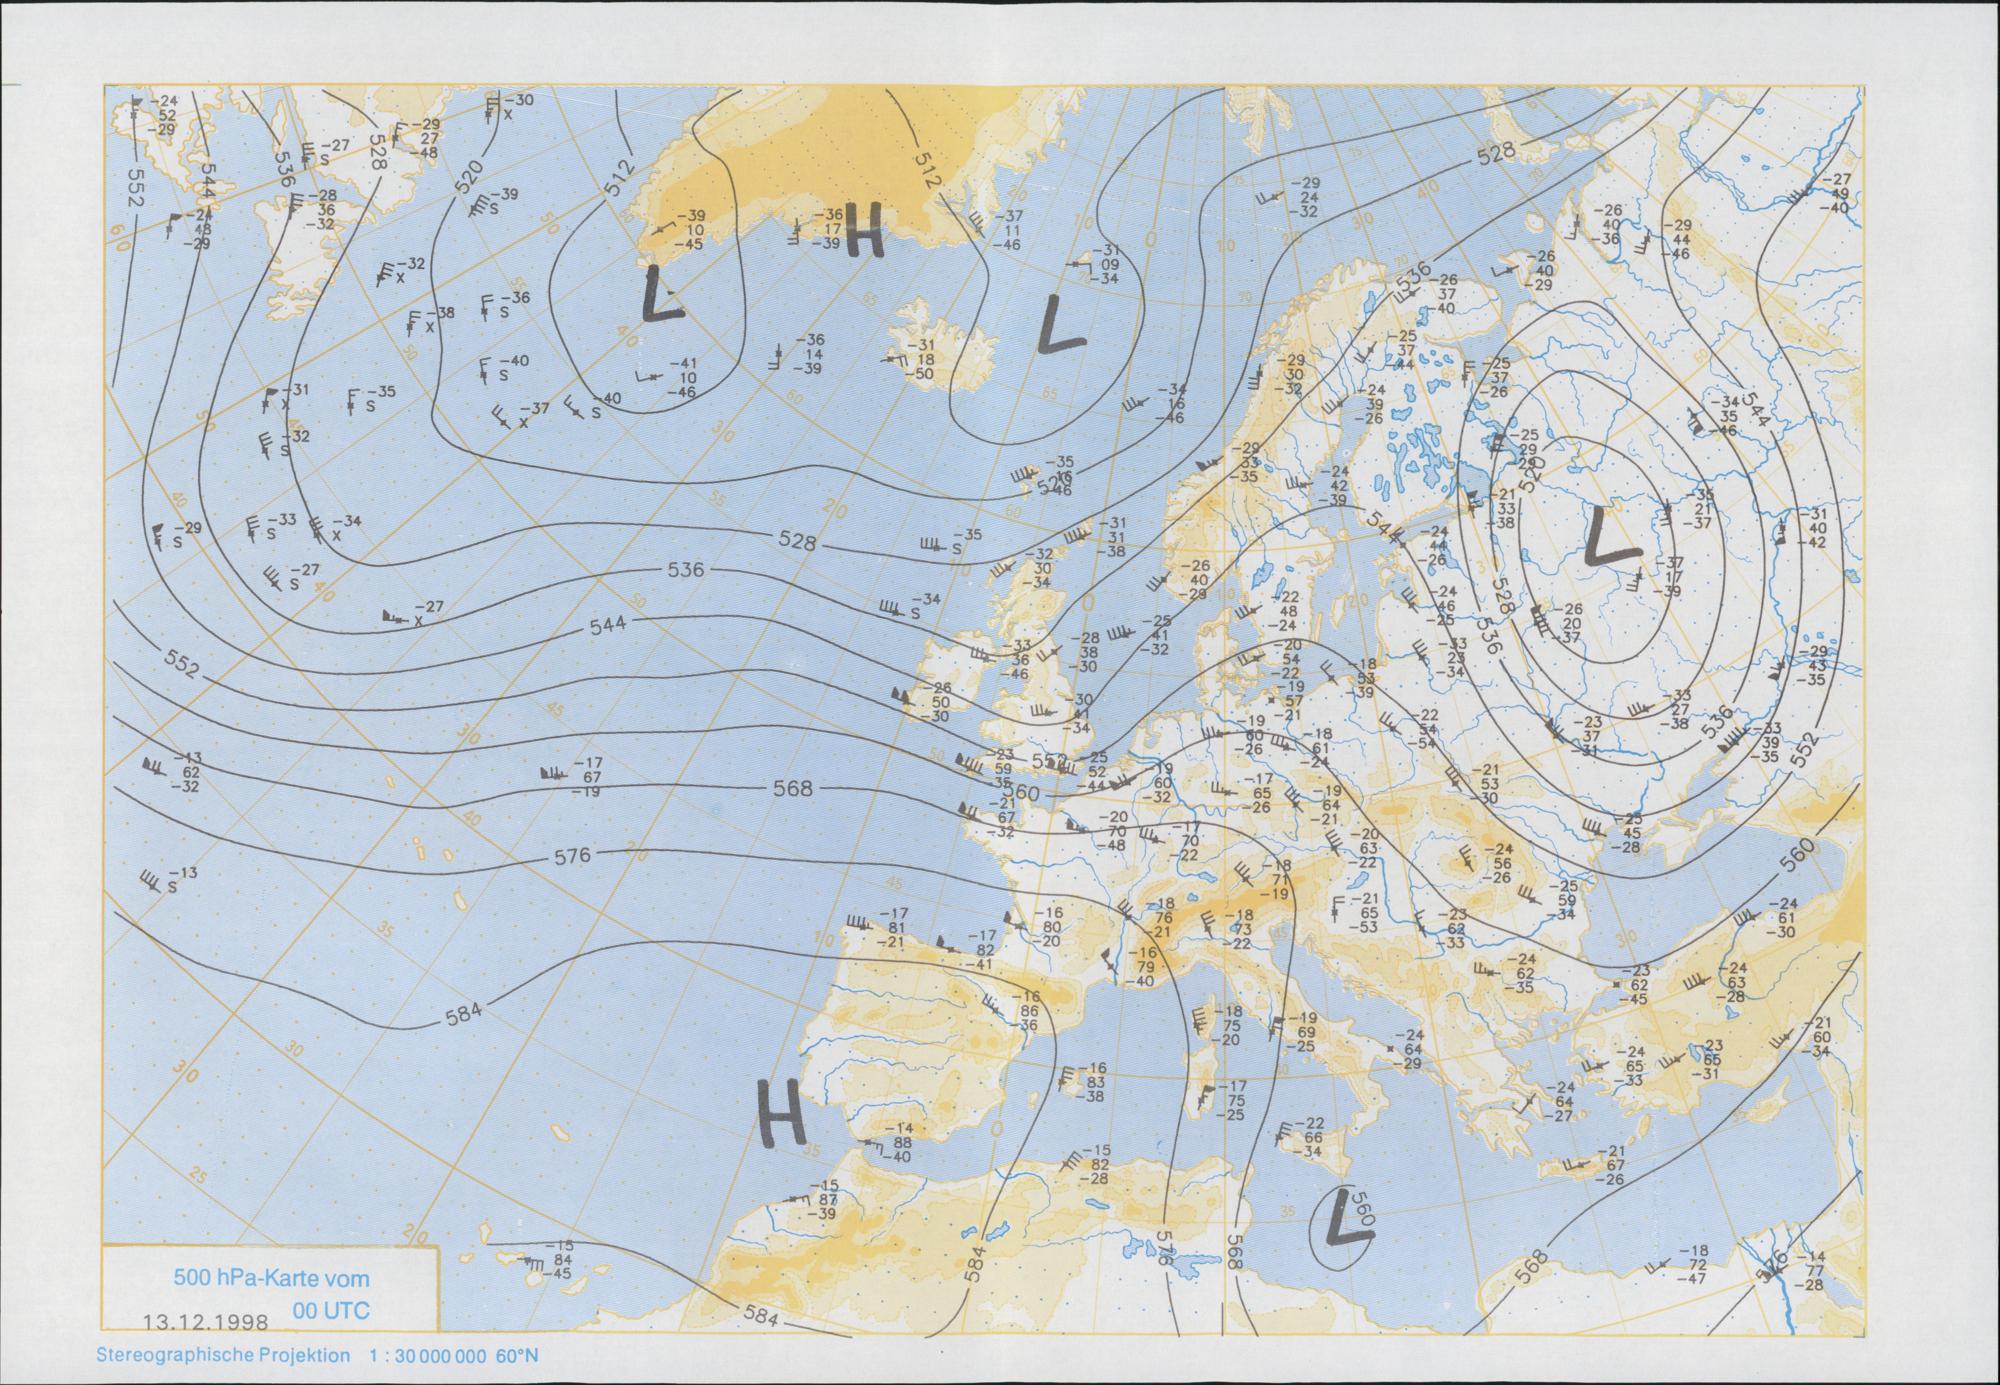 -24
52
-29
-30
X
-29
27
-48
-27
S
552
544
536
528
520
512
512
528
-28
36
-32
-39
S
-24
43
-29
-39
10
-45
-36
17
-39
H
-37
11
-46
-29
24
-32
-26
40
-36
-29
44
-46
-27
49
-40
-32
X
-36
S
-38
X
L
-31
09
-34
L
536
-26
37
-40
-26
40
-29
-40
S
-36
14
-39
-31
18
-50
-41
10
-46
-29
30
-32
-25
37
-44
-25
37
-26
-31
X
-35
S
-37
X
-40
S
-34
16
-46
-24
39
-26
-34
35
-46
544
-32
S
-35
16
-46
520
-29
33
-35
-24
42
-39
-25
29
-29
520
-29
S
-33
S
-34
X
528
-35
S
-31
31
-38
544
-21
33
-38
L
-35
21
-37
-31
40
-42
-27
S
536
-32
30
-34
-26
40
-29
-24
44
-26
-37
17
-39
-27
X
544
-34
S
-25
41
-32
-22
48
-24
-24
46
-25
528
536
-26
20
-37
552
-33
36
-46
-28
38
-30
-20
54
-22
-18
53
-39
-33
23
-34
-29
43
-35
-26
50
-30
-30
41
-34
-19
57
-21
-22
54
-54
-23
37
-31
-33
27
-38
536
-33
39
-35
552
-13
62
-32
-17
67
-19
568
-23
59
-35
552
-25
52
-44
560
-19
60
-32
-19
60
-26
-18
61
-24
-17
65
-26
-19
64
-21
-21
53
-30
-21
67
-32
-20
70
-48
-17
70
-22
-20
63
-22
-25
45
-28
560
576
-13
S
-18
71
-19
-24
56
-26
-25
59
-34
-17
81
-21
-17
82
-41
-16
80
-20
-18
76
-21
-18
73
-22
-21
65
-53
-23
62
-33
-24
61
-30
-16
79
-40
-24
62
-35
-23
62
-45
-24
63
-28
584
-16
86
-36
-18
75
-20
-19
69
-25
-24
64
-29
-24
65
-33
-23
65
-31
-21
60
-34
H
-16
83
-38
-17
75
-25
-24
64
-27
-14
88
-40
-15
82
-28
-22
66
-34
-21
67
-26
-15
87
-39
L
560
-15
84
-45
584
584
576
568
568
-18
72
-47
576
-14
77
-28
500 hPa-Karte vom
00 UTC
13.12.1998
Stereographische Projektion 1 : 30 000 000 60°N